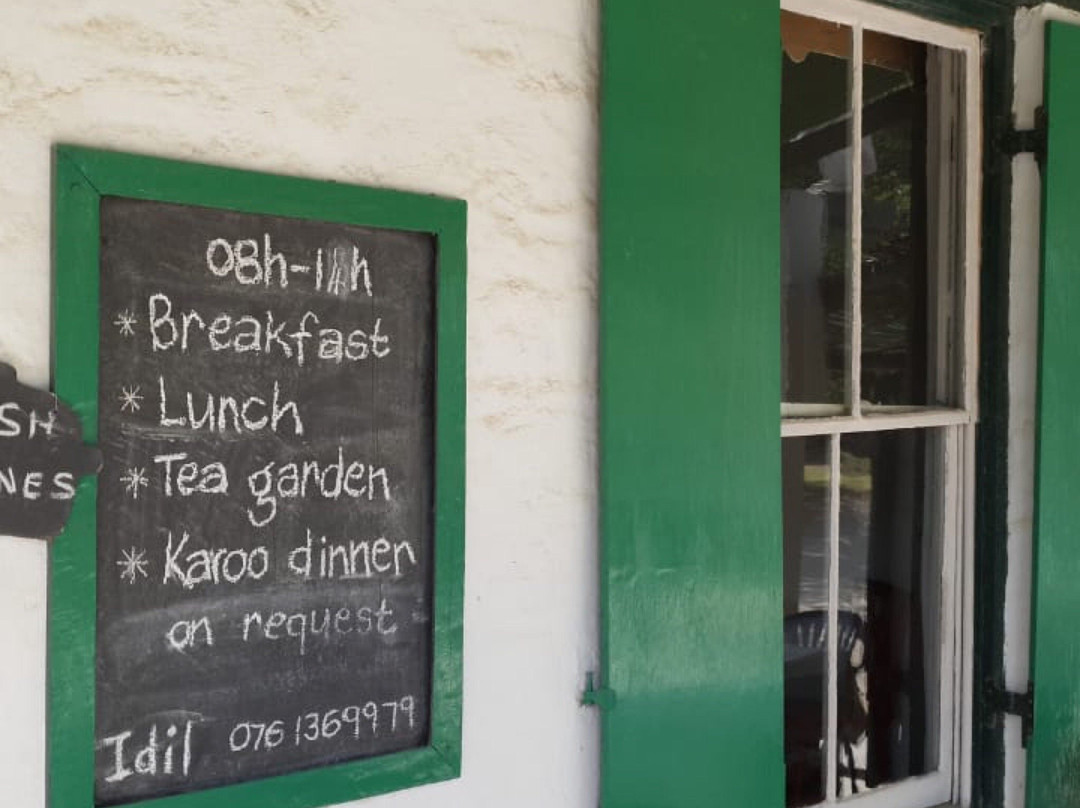 08h-14h
* Breakfast
* Lunch
* Tea garden
* Karoo dinner
on request
Idil 0761369979
SH
NES